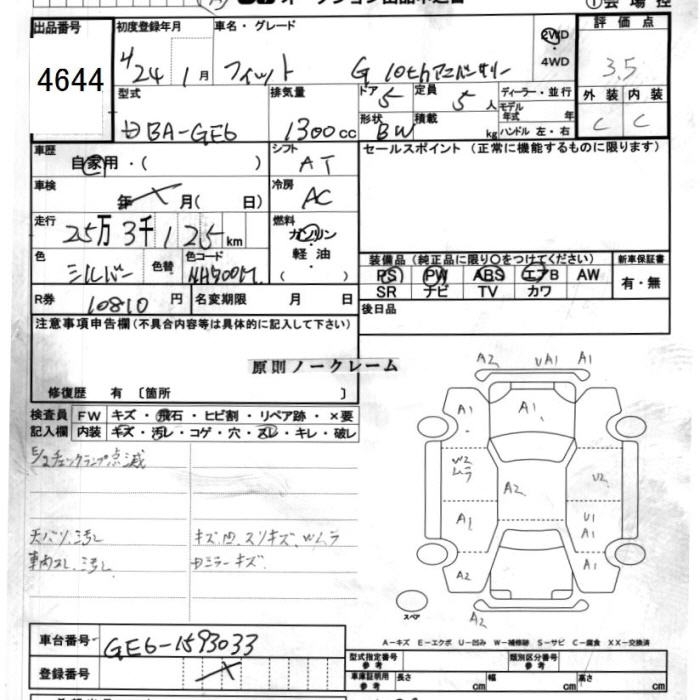 出品番号
4644
初度登録年月
24 1月
車名・グレード
フィット G 10thアニバーサリー
2WD
・
4WD
評価点
3.5
型式
DBA-GE6
排気量
1300cc
ドア 5
定員 5人
ディーラー・並行
モデル年式 年
形状 BW
積載 kg
ハンドル 左・右
外装 内装
C C
車歴
自家用・( )
シフト
AT
セールスポイント (正常に機能するものに限ります)
車検
年 月( 日)
冷房
AC
走行
25万3千125km
燃料
ガソリン
軽油
( )
色
シルバー
色替
色コード
NH700M
装備品 (純正品に限り○をつけてください)
新車保証書
PS PW ABS エアB AW
SR ナビ TV カワ
有・無
R券 10810円
名変期限 月 日
後日品
注意事項申告欄 (不具合内容等は具体的に記入して下さい)
原則ノークレーム
修復歴 有 〔箇所 〕
検査員
記入欄
FW キズ・飛石・ヒビ割・リペア跡・×要
内装 キズ・汚レ・コゲ・穴・スレ・キレ・破レ
E/gチェックランプ点滅
天バリ汚し
車内スレ、汚し
キズ凹、スリキズ、Wムラ
ミラーキズ
A2 UA1 A1
A1 A1 A1
W2
ムラ
A2
U2
A1
U1
A1
A2 A1
スペア
A2
車台番号
GE6-1593033
登録番号
A-キズ E-エクボ U-凹み W-補修跡 S-サビ C-腐食 XX-交換済
型式指定番号
参考
類別区分番号
参考
車庫証明用
参考
長さ cm
幅 cm
高さ cm